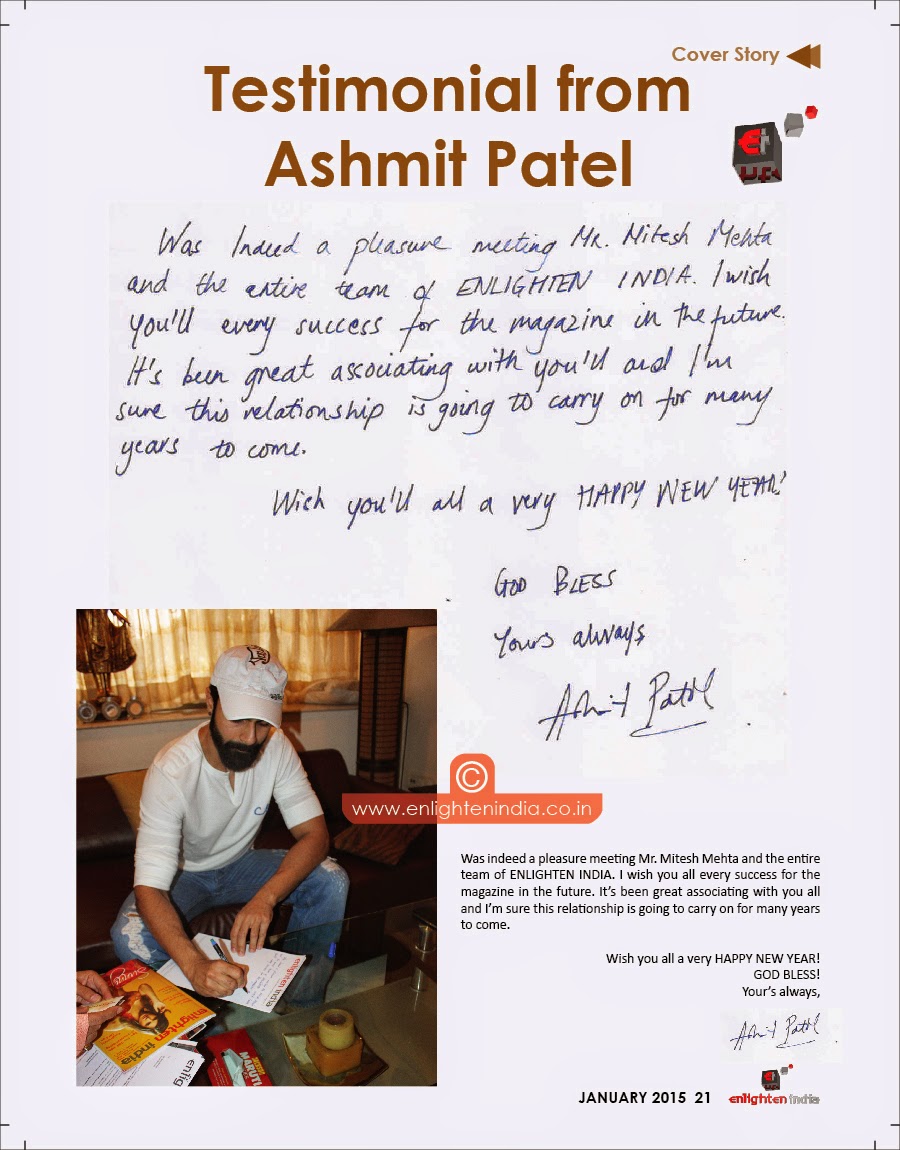 Cover Story
Testimonial from
Ashmit Patel
Was Indeed a pleasure meeting Mr. Mitesh Mehta
and the entire team of ENLIGHTEN INDIA. I wish
you'll every success for the magazine in the future.
It's been great associating with you'll and I'm
sure this relationship is going to carry on for many
years to come.
Wish you'll all a very HAPPY NEW YEAR!
GOD BLESS
Yours always
Ashmit Patel
©
www.enlightenindia.co.in
enlighten india
Swings
enlighten india
MARUTI
Was indeed a pleasure meeting Mr. Mitesh Mehta and the entire
team of ENLIGHTEN INDIA. I wish you all every success for the
magazine in the future. It's been great associating with you all
and I'm sure this relationship is going to carry on for many years
to come.
Wish you all a very HAPPY NEW YEAR!
GOD BLESS!
Your's always,
Ashmit Patel
JANUARY 2015 21
enlighten india